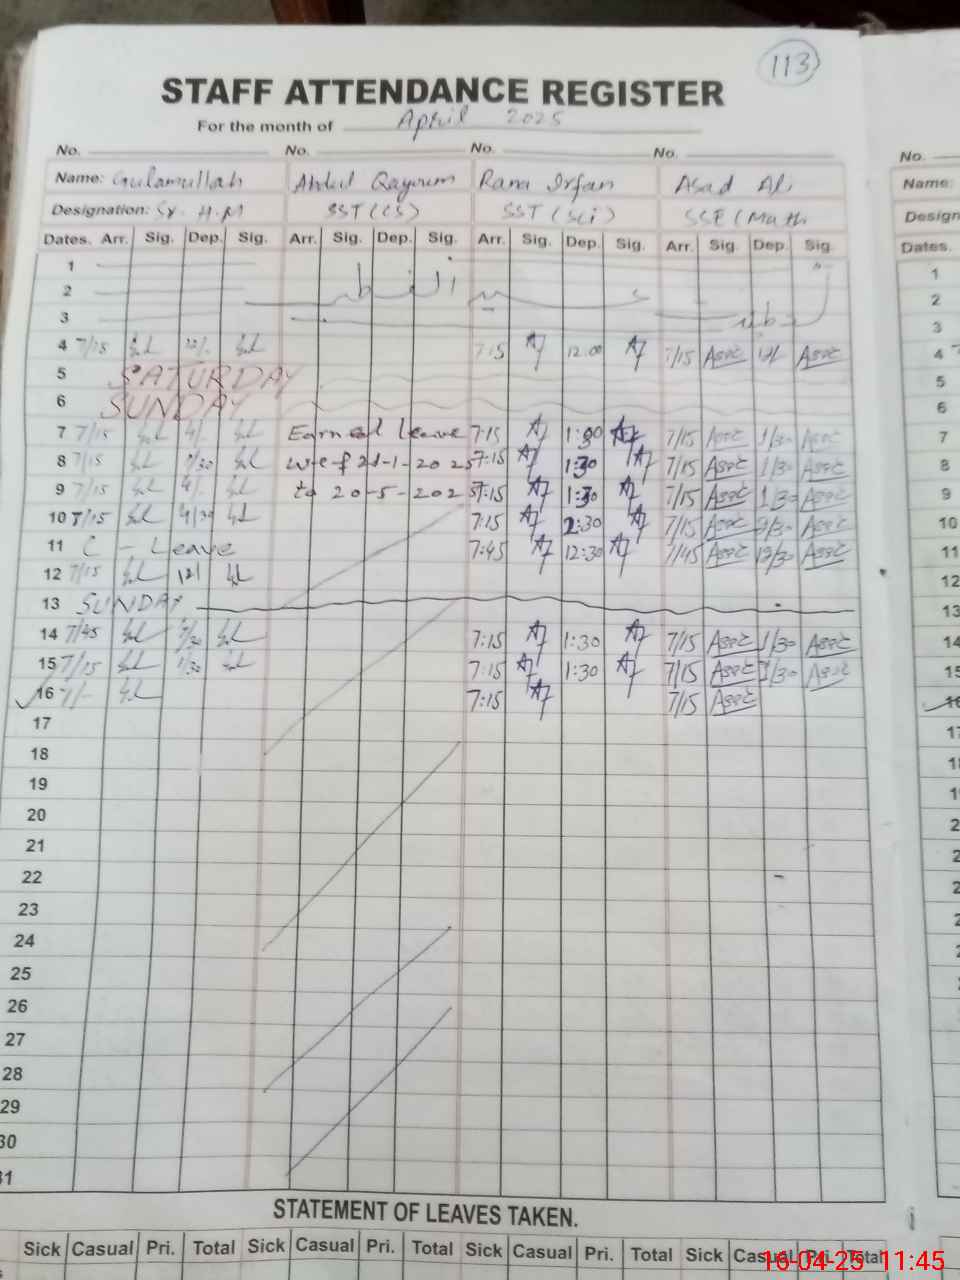 113
STAFF ATTENDANCE REGISTER
For the month of April 2025
No. No. No. No. No.
Name: Gulamullah Abdul Qayoum Rana Irfan Asad Ali Name:
Designation: Sr. H.M SST (CS) SST (Sci) SSE (Math Design
Dates. Arr. Sig. Dep. Sig. Arr. Sig. Dep. Sig. Arr. Sig. Dep. Sig. Arr. Sig. Dep. Sig. Dates.
1 1
2 2
3 3
4 7/15 12/- 7:15 12:00 7/15 Asad 12/ Asad 4
5 SATURDAY 5
6 SUNDAY 6
7 7/15 Earned leave 7:15 1:30 7/15 Asad 1/30 Asad 7
8 7/15 1/30 w-e-f 21-1-2025 7:15 1:30 7/15 Asad 1/30 Asad 8
9 7/15 to 20-5-2025 7:15 1:30 7/15 Asad 1/30 Asad 9
10 7/15 4/30 7:15 2:30 7/15 Asad Asad 10
11 C - Leave 7:45 12:30 7/45 Asad 12/30 Asad 11
12 7/15 12/ 12
13 SUNDAY 13
14 7/45 7:15 1:30 7/15 Asad 1/30 Asad 14
15 7/15 1/30 7:15 1:30 7/15 Asad 1/30 Asad 15
16 7/- 7:15 7/15 Asad 16
17 17
18 18
19
20
21
22
23
24
25
26
27
28
29
30
31
STATEMENT OF LEAVES TAKEN.
Sick Casual Pri. Total Sick Casual Pri. Total Sick Casual Pri. Total Sick Casual Pri. Total
16-04-25 11:45